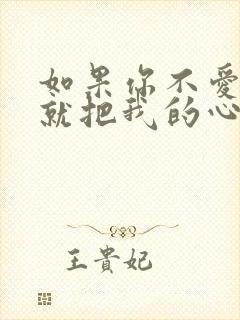 如果你不愛
就把我的心
王貴妃